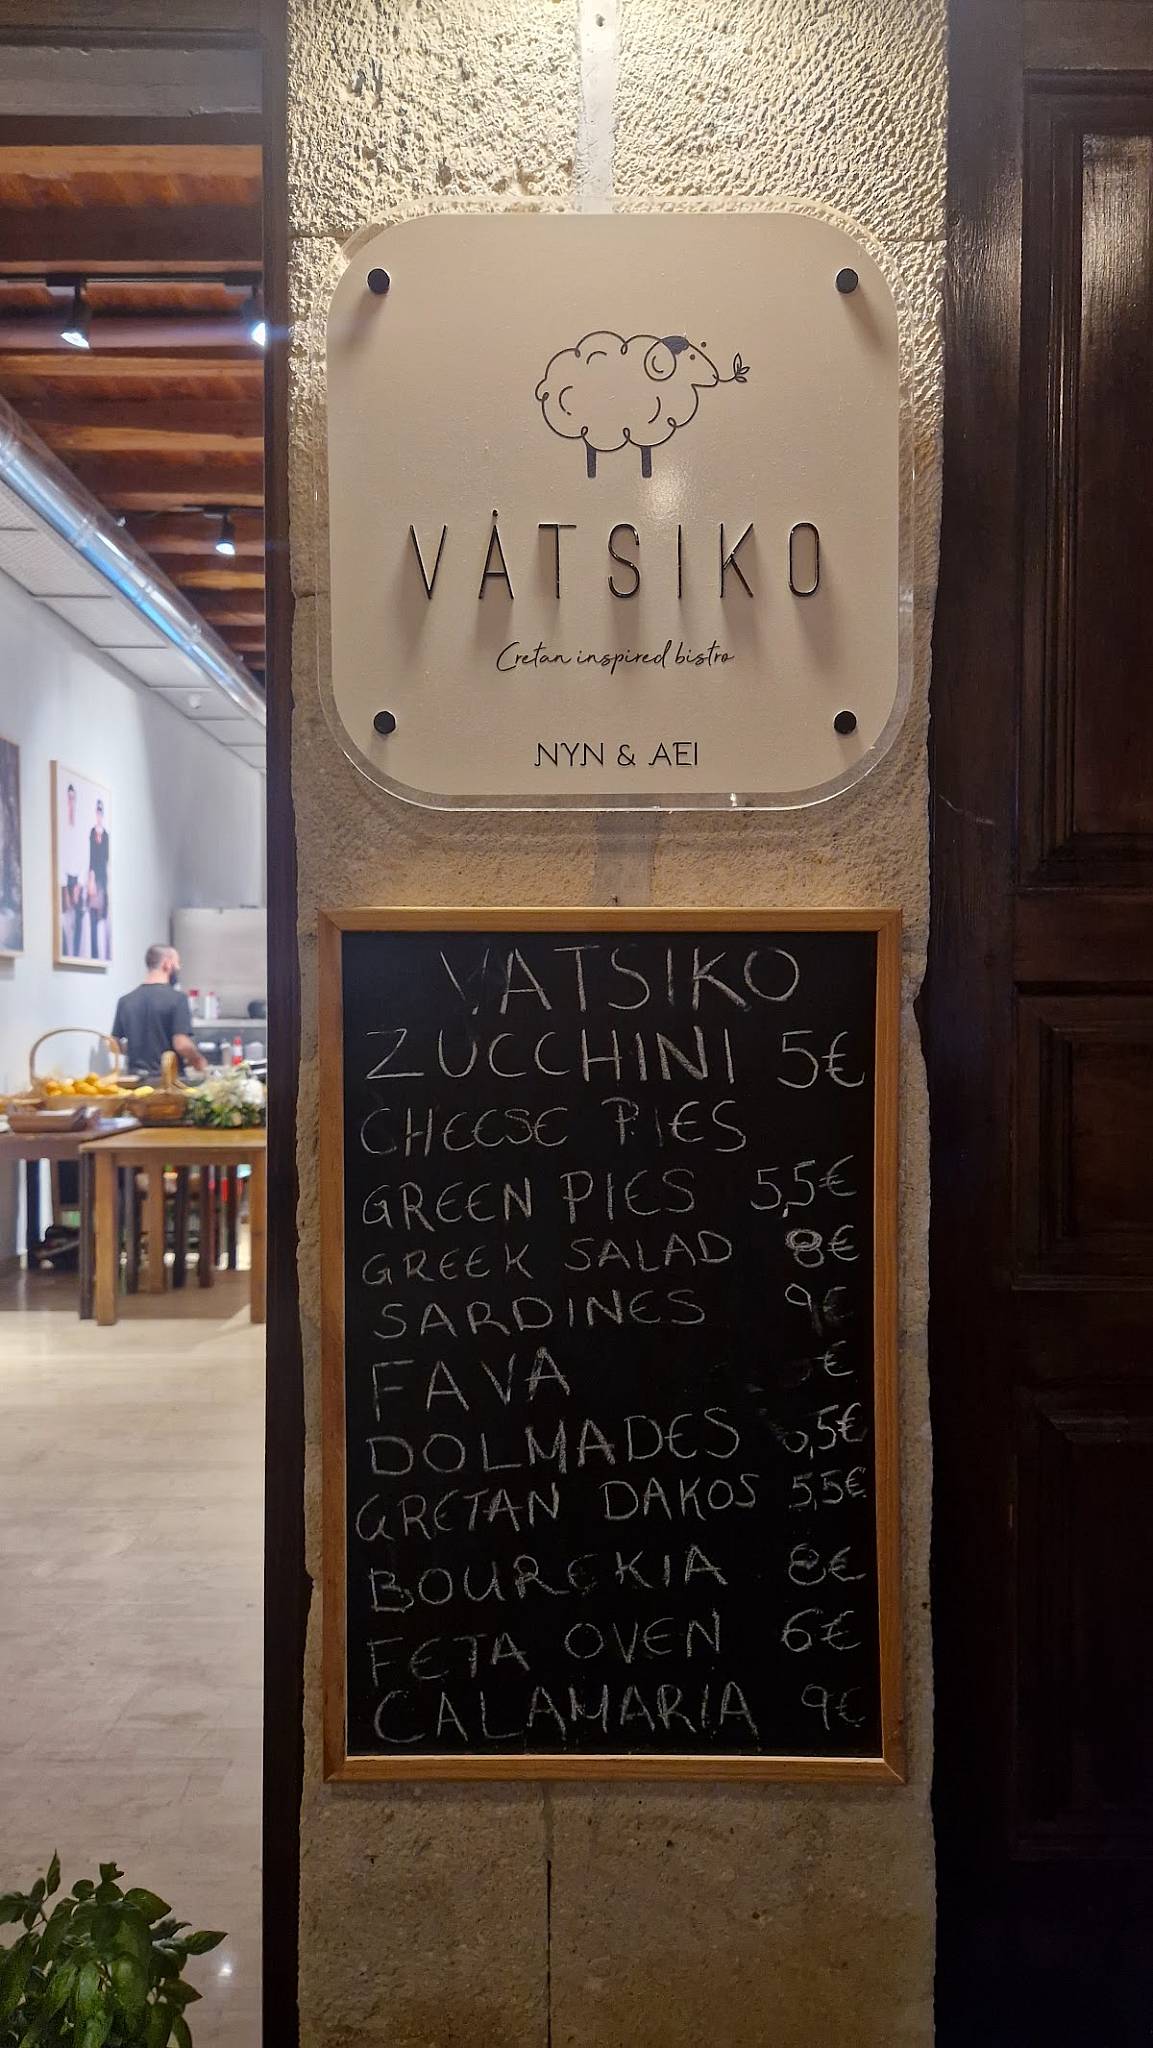 VÁTSIKO
Cretan inspired bistro
NYN & AEI
VATSIKO
ZUCCHINI 5€
CHEESE PIES
GREEN PIES 5,5€
GREEK SALAD 8€
SARDINES 9€
FAVA €
DOLMADES
GRETAN DAKOS 5,5€
BOUREKIA 8€
FETA OVEN 6€
CALAMARIA 9€